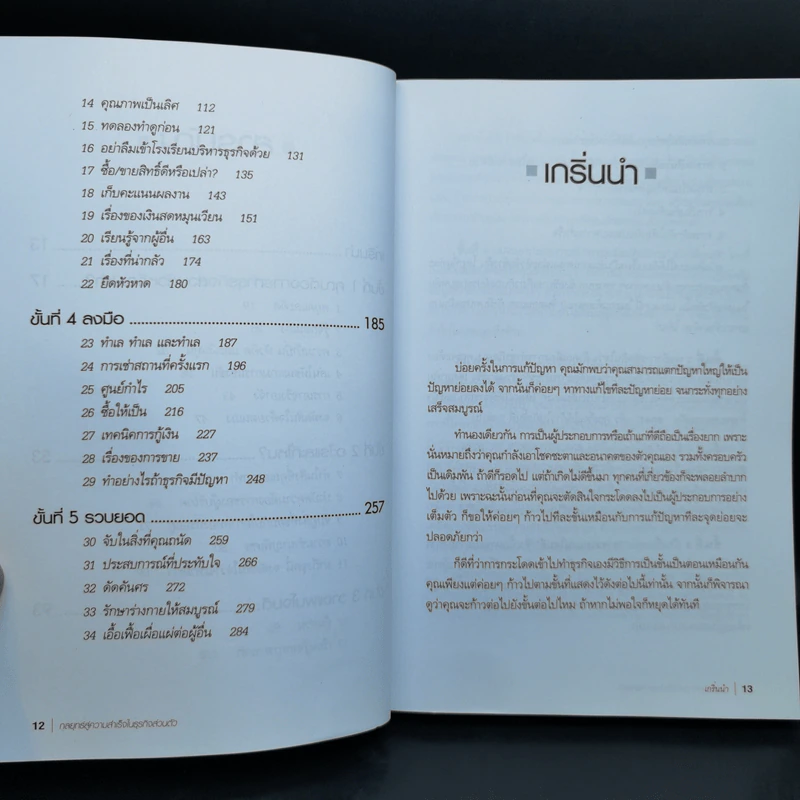 14 คุณภาพเป็นเลิศ 112
15 ทดลองทำดูก่อน 121
16 อย่าลืมเข้าโรงเรียนบริหารธุรกิจด้วย 131
17 ซื้อ/ขายสิทธิ์ดีหรือเปล่า? 135
18 เก็บคะแนนผลงาน 143
19 เรื่องของเงินสดหมุนเวียน 151
20 เรียนรู้จากผู้อื่น 163
21 เรื่องที่น่ากลัว 174
22 ยึดหัวหาด 180
ขั้นที่ 4 ลงมือ 185
23 ทำเล ทำเล และทำเล 187
24 การเช่าสถานที่ครั้งแรก 196
25 ศูนย์กำไร 205
26 ซื้อให้เป็น 216
27 เทคนิคการกู้เงิน 227
28 เรื่องของการขาย 237
29 ทำอย่างไรถ้าธุรกิจมีปัญหา 248
ขั้นที่ 5 รวบยอด 257
30 จับในสิ่งที่คุณถนัด 259
31 ประสบการณ์ที่ประทับใจ 266
32 ดัดคันศร 272
33 รักษาร่างกายให้สมบูรณ์ 279
34 เอื้อเฟื้อเผื่อแผ่ต่อผู้อื่น 284
12 | กลยุทธ์สู่ความสำเร็จในธุรกิจส่วนตัว
เกริ่นนำ
บ่อยครั้งในการแก้ปัญหา คุณมักพบว่าคุณสามารถแตกปัญหาใหญ่ให้เป็น
ปัญหาย่อยลงได้ จากนั้นก็ค่อยๆ หาทางแก้ไขทีละปัญหาย่อย จนกระทั่งทุกอย่าง
เสร็จสมบูรณ์
ทำนองเดียวกัน การเป็นผู้ประกอบการหรือเถ้าแก่ที่ดีถือเป็นเรื่องยาก เพราะ
นั่นหมายถึงว่าคุณกำลังเอาโชคชะตาและอนาคตของตัวคุณเอง รวมทั้งครอบครัว
เป็นเดิมพัน ถ้าดีก็รอดไป แต่ถ้าเกิดไม่ดีขึ้นมา ทุกคนที่เกี่ยวข้องก็จะพลอยลำบาก
ไปด้วย เพราะฉะนั้นก่อนที่คุณจะตัดสินใจกระโดดลงไปเป็นผู้ประกอบการอย่าง
เต็มตัว ก็ขอให้ค่อยๆ ก้าวไปทีละขั้นเหมือนกับการแก้ปัญหาทีละจุดย่อยจะ
ปลอดภัยกว่า
ก็ดีที่ว่าการกระโดดเข้าไปทำธุรกิจเองมีวิธีการเป็นขั้นเป็นตอนเหมือนกัน
คุณเพียงแต่ค่อยๆ ก้าวไปตามขั้นที่แสดงไว้ดังต่อไปนี้เท่านั้น จากนั้นก็พิจารณา
ดูว่าคุณจะก้าวต่อไปยังขั้นต่อไปไหม ถ้าหากไม่พอใจก็หยุดได้ทันที
เกริ่นนำ | 13